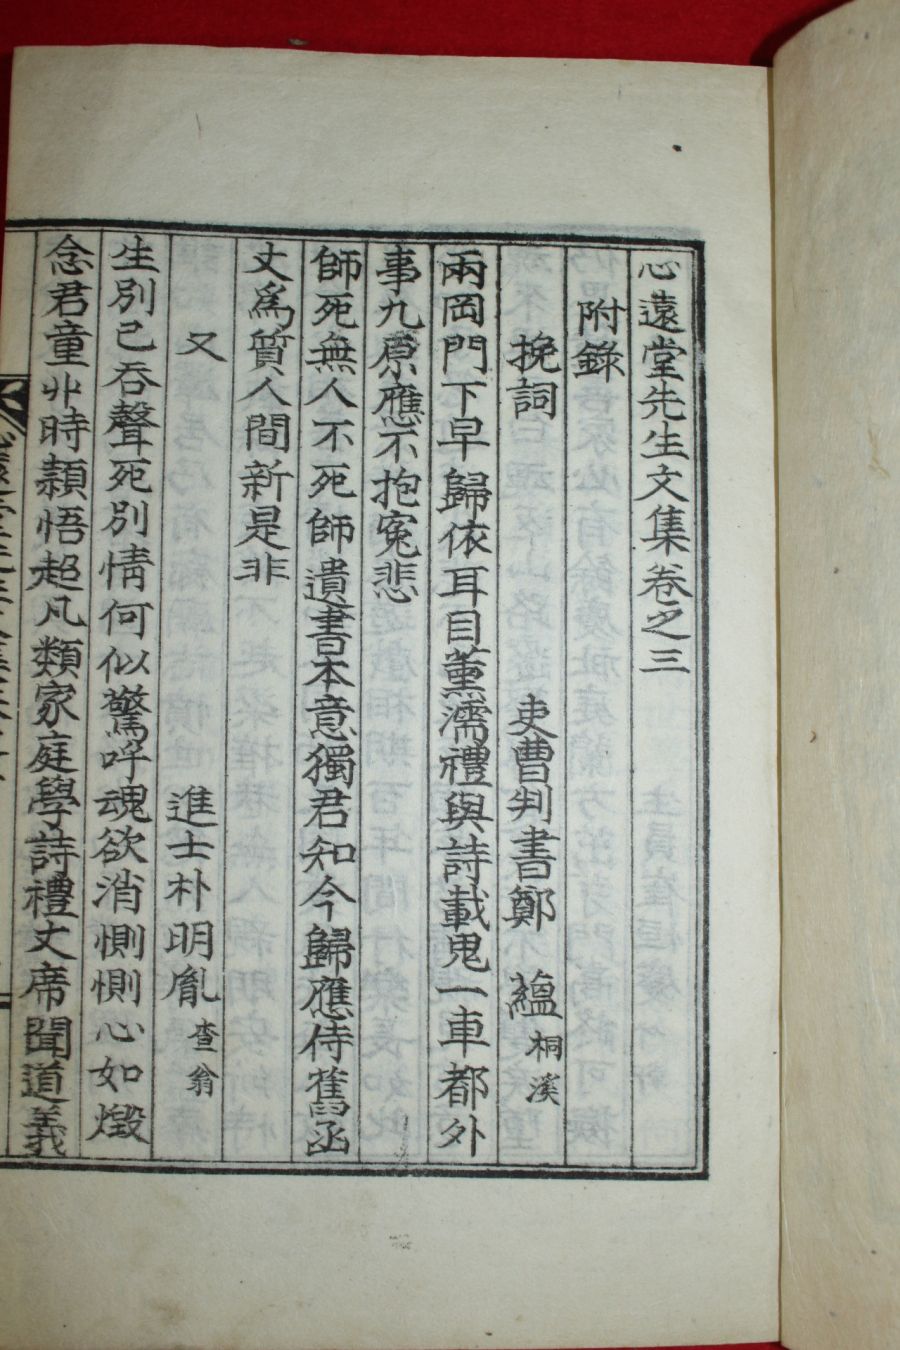 心遠堂先生文集卷之三
附錄
挽詞　吏曹判書鄭　蘊 桐溪
兩岡門下早歸依耳目薰濡禮與詩載鬼一車都外
事九原應不抱寃悲
師死無人不死師遺書本意獨君知今歸應侍舊函
丈爲質人間新是非
又　進士朴明胤 查翁
生別已吞聲死別情何似驚呼魂欲消惻惻心如燬
念君童丱時穎悟超凡類家庭學詩禮丈席聞道義